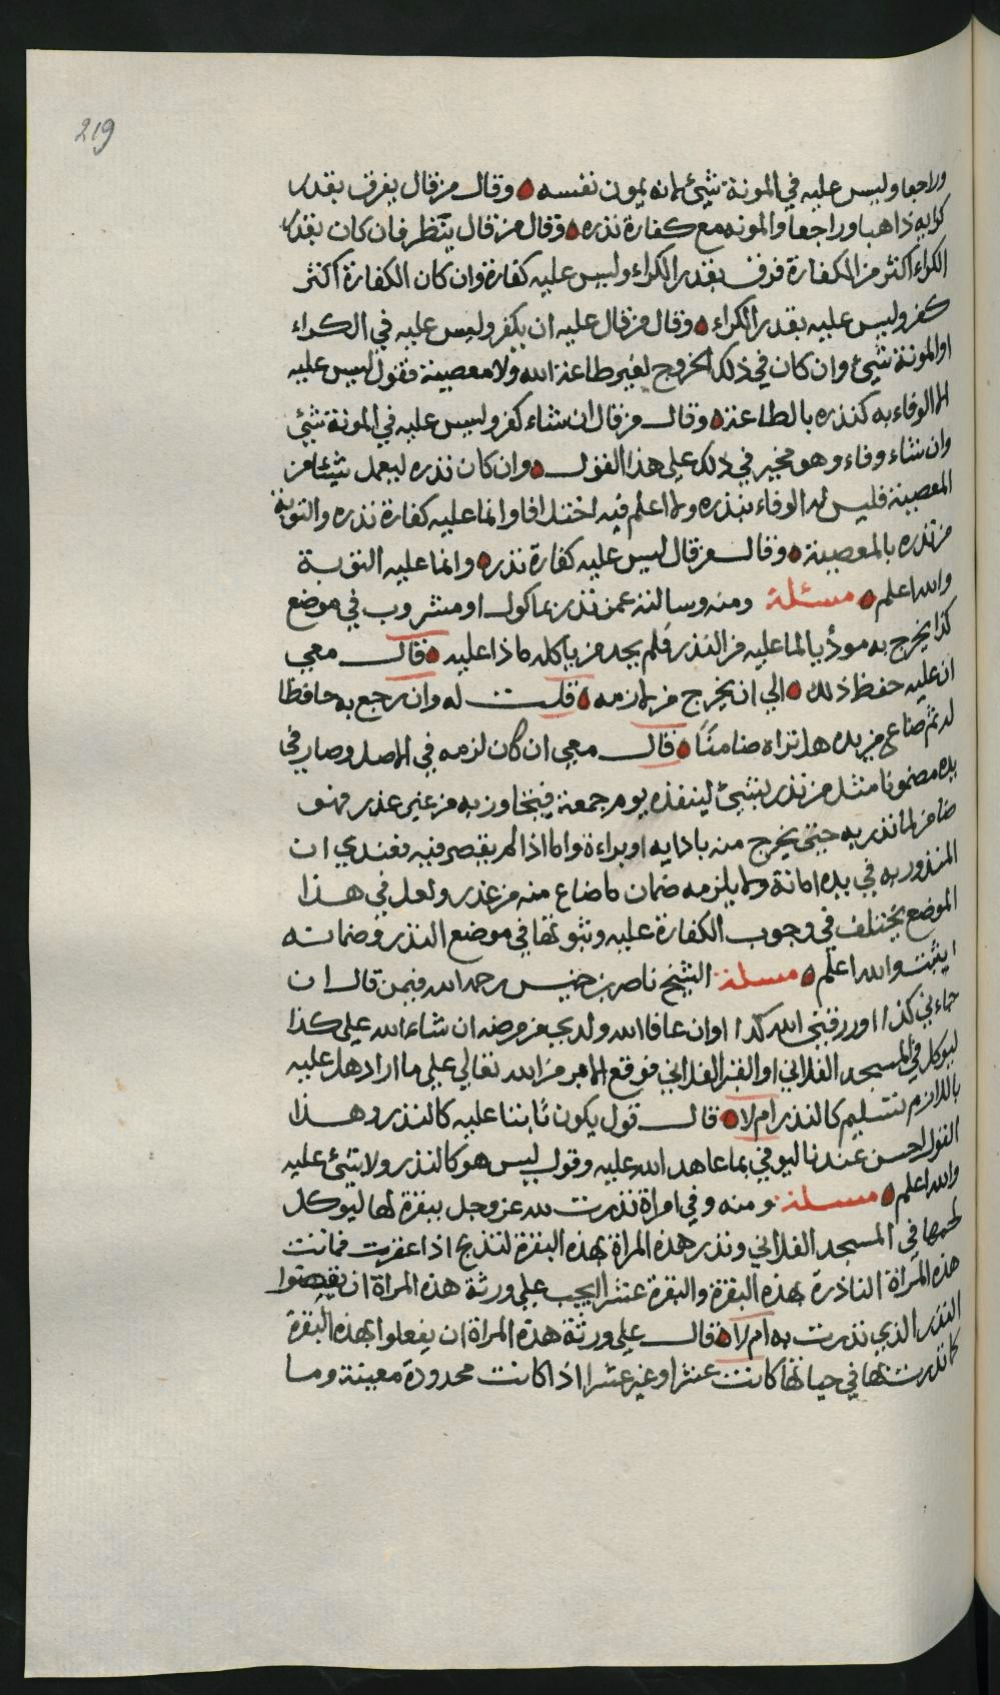 219
وراجعا وليس عليه في المونة شيئ لانه يمون نفسه وقال من قال يفرق بقدر
كرايه ذاهبا وراجعا والمونه مع كفارة نذره وقال من قال ينظر فان كان بقدر
الكراء اكثر من الكفارة فرق بقدر الكراء وليس عليه كفارة وان كان الكفارة اكثر
كفر وليس عليه بقدر الكراء وقال من قال عليه ان يكفر وليس عليه في الكراء
او المونة شيئ وان كان في ذلك الخروج لغير طاعة الله ولا معصية فقول ليس عليه
الا الوفاء به كنذره بالطاعة وقال من قال ان شاء كفر وليس عليه في المونة شيئ
وان شاء وفاء وهو مخير في ذلك على هذا القول وان كان نذره ليعمل شيئا من
المعصية فليس له الوفاء بنذره ولا اعلم فيه اختلافا وانما عليه كفارة نذره والتوبة
من نذره بالمعصية وقال من قال ليس عليه كفارة نذره وانما عليه التوبة
والله اعلم مسئلة ومنه وسالته عمن نذر بماكول او مشروب في موضع
كذا يخرج به موديا لما عليه من النذر فلم يجد من ياكله ماذا عليه قال معي
ان عليه حفظ ذلك الي ان يخرج من لزمه قلت له وان رجع به حافظا
له ثم ضاع من يده هل تراه ضامنا قال معي ان كان لزمه في الاصل وصار في
يده مضمونا مثل من نذر بشيئ لينفذه يوم جمعة فيتجاوز به من غير عذر فهو
ضامن لما نذر به حتى يخرج منه بادايه او براءة واما اذا لم يقصر فيه فعندي ان
المنذور به في يده امانة ولا يلزمه ضمان ما ضاع منه من عذر ولعل في هذا
الموضع يختلف في وجوب الكفارة عليه وثبوتها في موضع النذر وضمانه
اثبت والله اعلم مسلة الشيخ ناصر بن خميس رحمه الله فيمن قال ان
جاءني كذا او رزقني الله كذا او ان عافا الله ولدي من مرضه ان شاء الله علي كذا
ليوكل في المسجد الفلاني او القبر الفلاني فوقع الامر من الله تعالى على ما اراد هل عليه
باللازم تسليم كالنذر ام لا قال قول يكون ثابتا عليه كالنذر وهذا
القول احسن عندنا ليوفي بما عاهد الله عليه وقول ليس هو كالنذر ولا شيئ عليه
والله اعلم مسلة ومنه وفي امراة نذرت لله عز وجل ببقرة لها ليوكل
لحمها في المسجد الفلاني ونذر هذه المراة بهذه البقرة لتذبح اذا عقرت فماتت
هذه المرآة الناذرة بهذه البقرة والبقرة عشرا ايجب على ورثة هذه المراة ان يقضوا
النذر الذي نذرت به ام لا قال على ورثة هذه المراة ان يفعلوا بهذه البقرة
كما نذرت بها في حياتها كانت عشرا او غير عشرا اذا كانت محدودة معينة وما